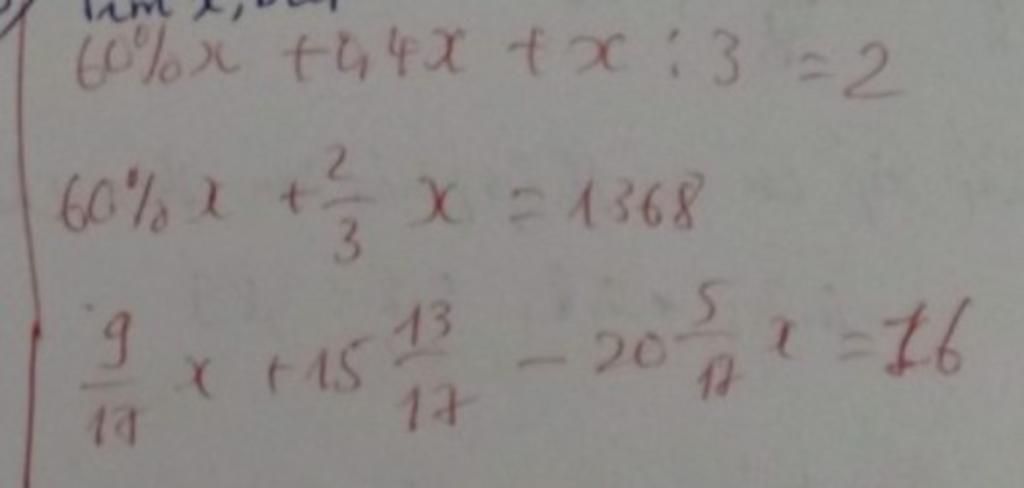 tìm x, biết
60%x + 0,4x + x : 3 = 2
60% x + 2/3 x = 1368
9/17 x + 15 13/17 - 20 5/17 x = 16